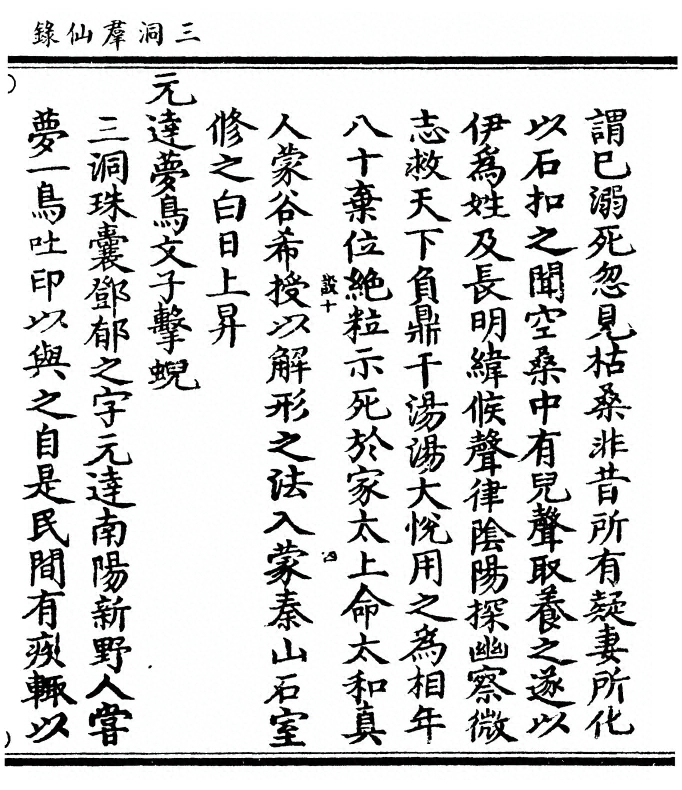 三洞羣仙錄
謂已溺死忽見枯桑非昔所有疑妻所化
以石扣之聞空桑中有兒聲取養之遂以
伊為姓及長明緯候聲律陰陽探幽察微
志救天下負鼎干湯湯大悅用之為相年
八十棄位絶粒示死於家太上命太和真
設十
四
人蒙谷希授以解形之法入蒙秦山石室
修之白日上昇
元達夢鳥文子擊蜺
三洞珠囊鄧郁之字元達南陽新野人嘗
夢一鳥吐印以與之自是民間有疾輒以